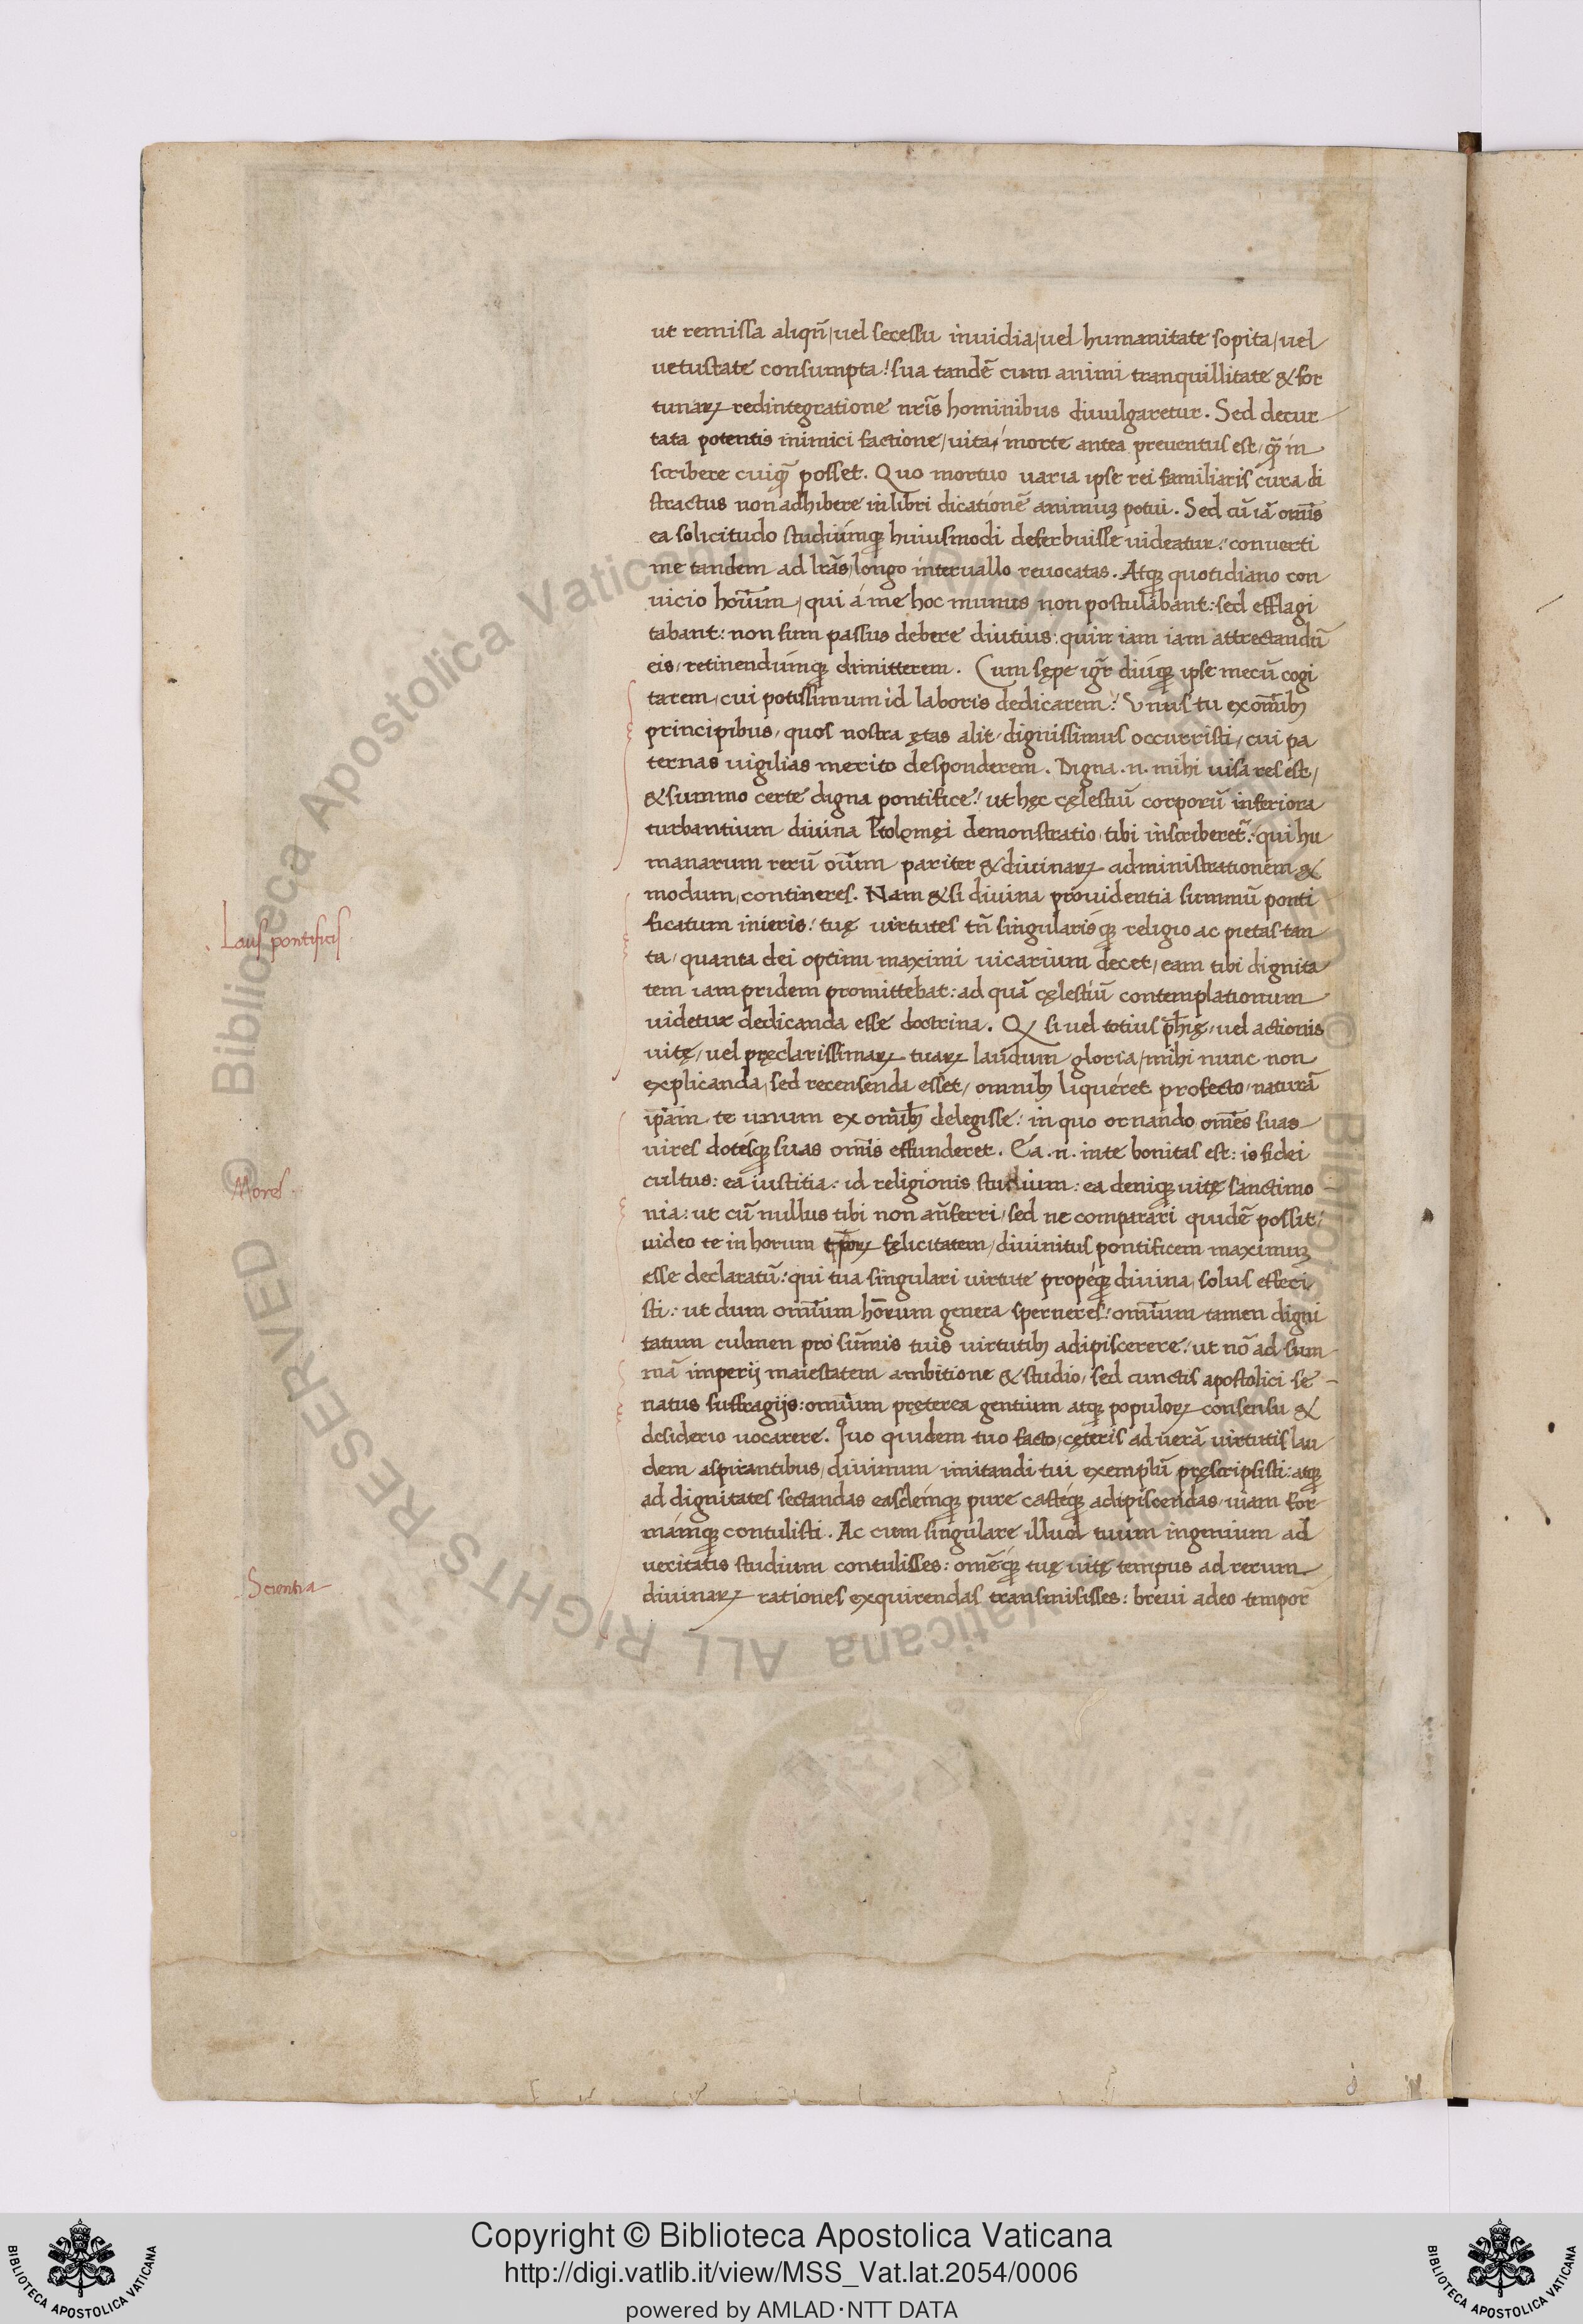 ut remissa aliqñ/uel secessu inuidia/uel humanitate sopita/uel
uetustate consumpta! sua tandē cum animi tranquillitate & for
tunaꝝ redintegratione nr̄is hominibus diuulgaretur. Sed decur
tata potentis inimici factione/uita/ morte antea preuentus est/ qꝫ̄ in
scribere cuiqꝫ̄ posset. Quo mortuo uaria ipse rei familiaris cura di
stractus non adhibere in libri dicationē animuꝫ potui. Sed cū iā om̄is
ea solicitudo studiúmqꝫ huiusmodi deferbuisse uideatur: conuerti
me tandem ad lr̄as/longo interuallo reuocatas. Atqꝫ quotidiano con
uicio hoīum/ qui á me hoc munus non postulabant: sed efflagi
tabant: non sum passus debere diutius: quin iam iam attrectandū
eis/ retinendúmqꝫ dimitterem. Cum sępe igr̄ diúqꝫ ipse mecū cogi
tarem/ cui potissimum id laboris dedicarem! Vnus tu ex om̄ibꝫ
principibus/ quos nostra ętas alit/ dignissimus occurristi/ cui pa
ternas uigilias merito desponderem. Digna .n. mihi uisa res est/
& summo certe digna pontifice! ut hęc cęlestiū corporū inferiora
turbantium diuina Ptolęmęi demonstratio/ tibi inscriberet᷑: qui hu
manarum rerū oīum pariter & diuinaꝝ administrationem &
modum/ contineres. Nam & si diuina prouidentia summū ponti
ficatum inieris: tuę uirtutes tn̄ singularísqꝫ religio ac pietas tan
ta/ quanta dei optimi maximi uicarium decet/ eam tibi dignita
tem iampridem promittebat: ad quā cęlestiū contemplationum
uidetur dedicanda esse doctrina. Qꝫ si uel totius ph̄ię/ uel actionis
uitę/ uel pręclarissimaꝝ tuaꝝ laudum gloria/ mihi nunc non
explicanda/ sed recensenda esset/ omnibꝫ liquéret profecto/ naturā
ip̄am/ te unum ex om̄ibꝫ delegisse: in quo ornando om̄es suas
uires dotésqꝫ suas om̄is effunderet. Ea .n. in te bonitas est: is fidei
cultus: ea iustitia: id religionis studium: ea deniqꝫ uitę sanctimo
nia: ut cū nullus tibi non añferri/ sed ne comparari quidē possit/
uideo te in horum tp̄oꝝ fęlicitatem/ diuinitus pontificem maximuꝫ
esse declaratū: qui tua singulari uirtute propéqꝫ diuina/ solus effeci
sti: ut dum om̄ium hōrum genera sperneres! om̄ium tamen digni
tatum culmen pro sūmis tuis uirtutibꝫ adipiscerere: ut nō ad sum
mā imperij maiestatem ambitione & studio/ sed cunctis apostolici se-
natus suffragijs: omnium pręterea gentium atqꝫ populoꝝ consensu &
desiderio uocarere. Quo quidem tuo facto/ cęteris ad uerā uirtutis lau
dem aspirantibus/ diuinum imitandi tui exemplū pręscripsisti: atqꝫ
ad dignitates sectandas easdémqꝫ pure castéqꝫ adipiscendas/ uiam for
mámqꝫ contulisti. Ac cum singulare illud tuum ingenium ad
ueritatis studium contulisses: omḗqꝫ tuę uitę tempus ad rerum
diuinaꝝ rationes exquirendas transmisisses: breui adeo tempor̄
Laus pontificis.
Mores.
Scientia
© Biblioteca Apostolica Vaticana ALL RIGHTS RESERVED
© Biblioteca Apostolica Vaticana ALL RIGHTS RESERVED
Copyright © Biblioteca Apostolica Vaticana
http://digi.vatlib.it/view/MSS_Vat.lat.2054/0006
powered by AMLAD·NTT DATA
BIBLIOTECA APOSTOLICA VATICANA
BIBLIOTECA APOSTOLICA VATICANA